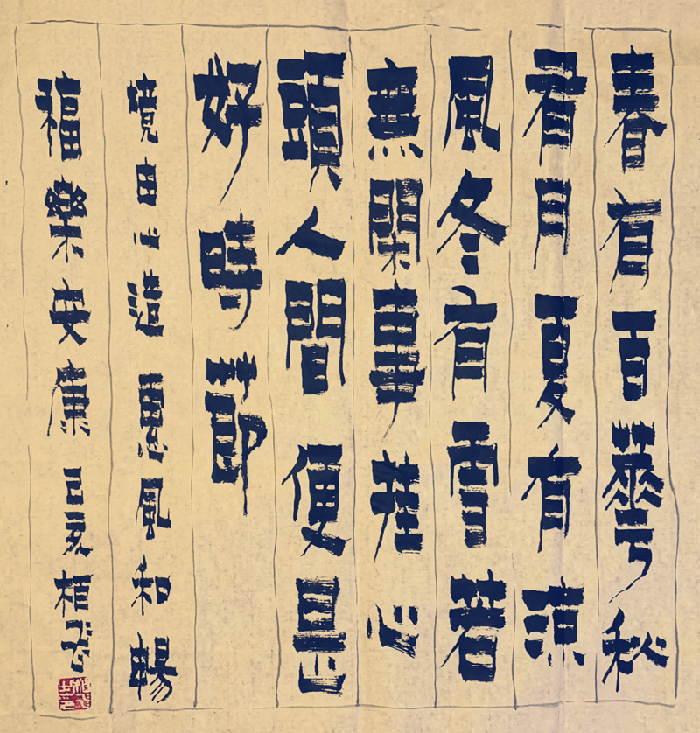 春有百華秋
有月夏有涼
風冬有雪若
無閑事挂心
頭人間便是
好時節
境由心造惠風和暢
福樂安康己亥柏